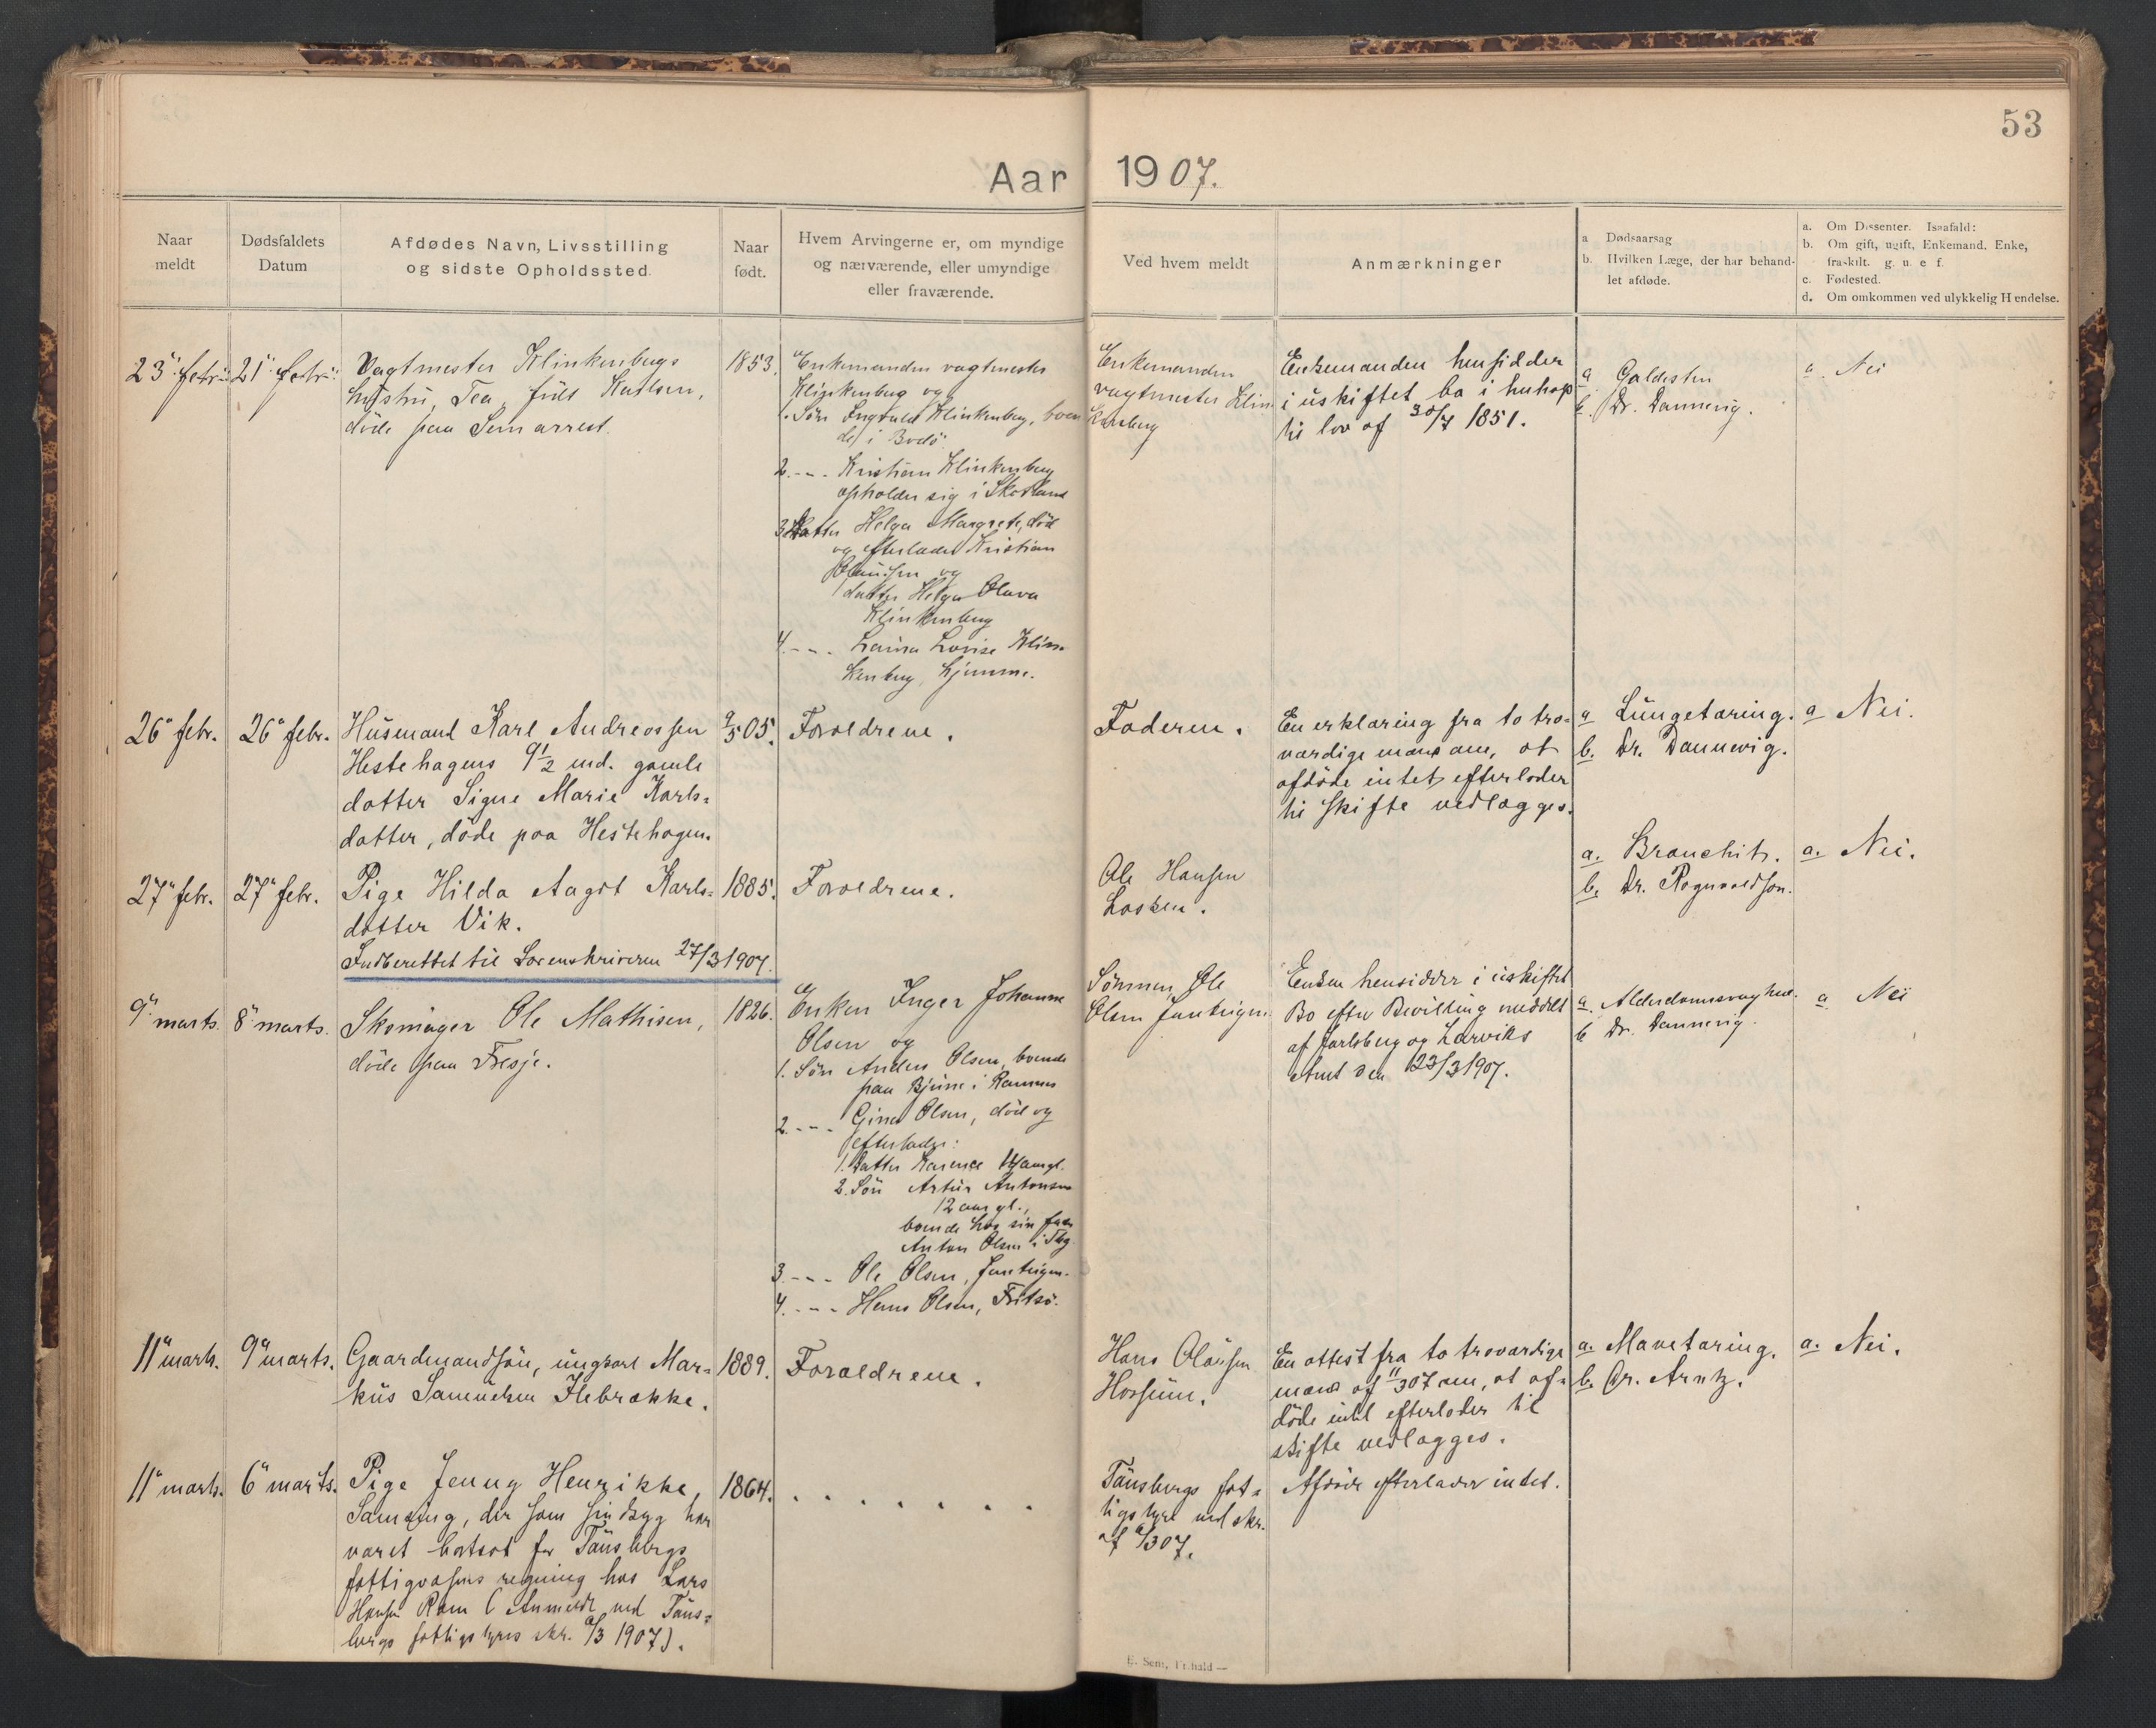 53
Aar 1907.
Naar
meldt
Dødsfaldets
Datum
Afdødes Navn, Livsstilling
og sidste Opholdssted.
Naar
født.
Hvem Arvingerne er, om myndige
og nærværende, eller umyndige
eller fraværende.
Ved hvem meldt
Anmærkninger
a Dødsaarsag
b. Hvilken Læge, der har behand-
let afdøde.
a. Om Dissenter. Isaafald:
b. Om gift, ugift, Enkemand, Enke,
fraskilt. g. u. e f.
c. Fødested.
d. Om omkommen ved ulykkelig Hendelse.
23" febr. 21" febr.
Vagtmester Klinkenbergs
hustru, Tea, født
døde paa Sem arrest.
1853.
Enkemanden vagtmester
Klinkenberg og
1. Søn Ingvald Klinkenberg, boen
de i Bodø.
2. -"- Kristian Klinkenberg
opholder sig i Skotland
3 Datter Helga Margrete, død
og efterlader Kristian
og
datter Helga Olava
Klinkenberg
4. -"- Laura Lovise Klin
kenberg, hjemme.
Enkemanden
vagtmester Klin
kenberg
Enkemanden hensidder
i uskiftet bo i henhop
til lov af 30/7 1851.
a Galdesten
b. Dr. Dannevig.
a. Nei
26" febr. 26" febr.
Husmand Karl Andreassen
Hestehagens 9½ md. gamle
datter Signe Marie Karls-
datter, døde paa Hestehagen.
9/5 05.
Forældrene.
Faderen.
En erklæring fra to tro-
værdige mænd om, at
afdøde intet efterlader
til skifte vedlægges.
a Lungetæring.
b. Dr. Dannevig.
a Nei.
27" febr. 27" febr.
Pige Hilda Aagot Karls-
datter Vik.
Indberettet til Sorenskriveren 27/3 1907.
1885.
Forældrene.
Ole Hansen
Lasken.
a. Bronchit.
b. Dr. Rognvaldson.
a. Nei.
9" marts. 8" marts.
Skomager Ole Mathisen,
døde paa Fresje.
1826.
Enken Inger Johanne
Olsen og
1. Søn Anders Olsen, boende
paa Bjune i Ramnes
2. -"- Gina Olsen, død og
efterlader:
1. Datter Karence 14 aar gl.
2. Søn Artur Antonsen
12 aar gl.,
boende hos sin fader
Anton Olsen i Tbg.
3. -"- Ole Olsen, Jarteigen.
4. -"- Hans Olsen, Fritsø.
Sønnen Ole
Olsen Jarteigen.
Enken hensidder i uskiftet
Bo efter Bevilling meddelt
af Jarlsberg og Larviks
Amt den 23/3 1907.
a. Alderdomssvaghed.
b. Dr. Dannevig.
a. Nei
11" marts. 9" marts.
Gaardmandsøn, ungkarl Mar-
kus Samuelsen Ilebrække.
1889.
Forældrene.
Hans Olausen
Horsum.
En attest fra to troværdige
mænd af 11/3 07 om, at af-
døde intet efterlader til
skifte vedlægges.
a. Mavetæring.
b. Dr. Arntz.
a. Nei.
11" marts. 6" marts.
Pige Jenny Henrikke
Samsing, der som sindssyg har
været bortsat for Tønsbergs
fattigvæsens regning hos Lars
Hansen Ram (Anmeldt ved Tøns-
bergs fattigstyres skr. 9/3 1907).
1864.
. . . . . . .
Tønsbergs fat-
tigstyre ved skr.
af 9/3 07.
Afdøde efterlader intet.
E. Sem, Fr.hald —